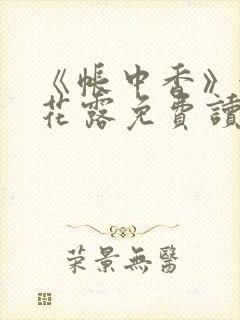 《帳中香》
花露免費讀
荣景無醫